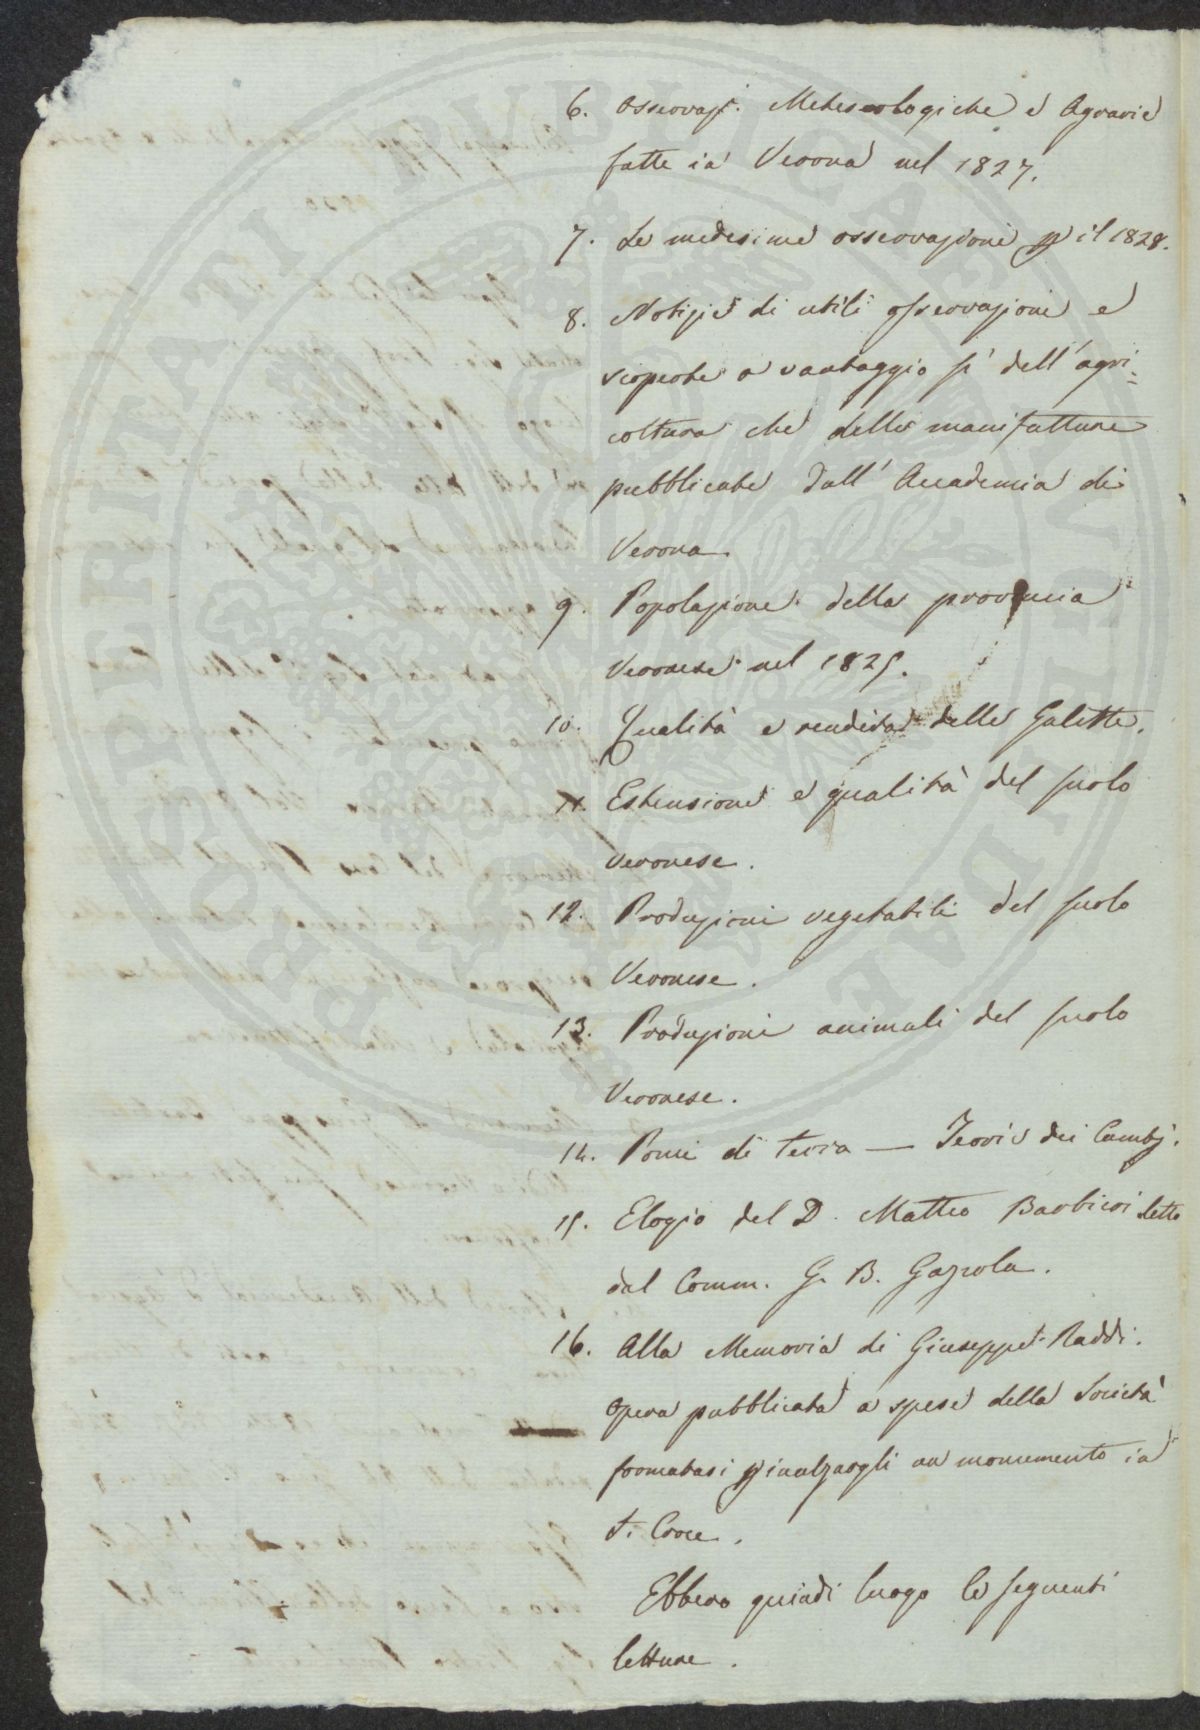 6. Osservaz.i Meteorologiche e Agrarie
fatte in Verona nel 1827.
7. Le medesime osservazioni p il 1828.
8. Notizie di utili osservazioni e
scoperte a vantaggio sì dell'agri=
coltura che delle manifatture
pubblicate dall'Accademia di
Verona.
9. Popolazione della provincia
Veronese nel 1825.
10. Qualità e rendita delle Galette.
11. Estensione e qualità del suolo
Veronese.
12. Produzioni vegetabili del suolo
Veronese.
13. Produzioni animali del suolo
Veronese.
14. Pomi di terra — Teoria dei Cambj.
15. Elogio del D. Matteo Barbieri letto
dal Comm. G. B. Gazola.
16. Alla Memoria di Giuseppe Raddi.
Opera pubblicata a spese della Società
formatasi p inalzargli un monumento in
S. Croce.
Ebbero quindi luogo le seguenti
letture.
PROSPERITATI PUBLICAE AUGENDAE